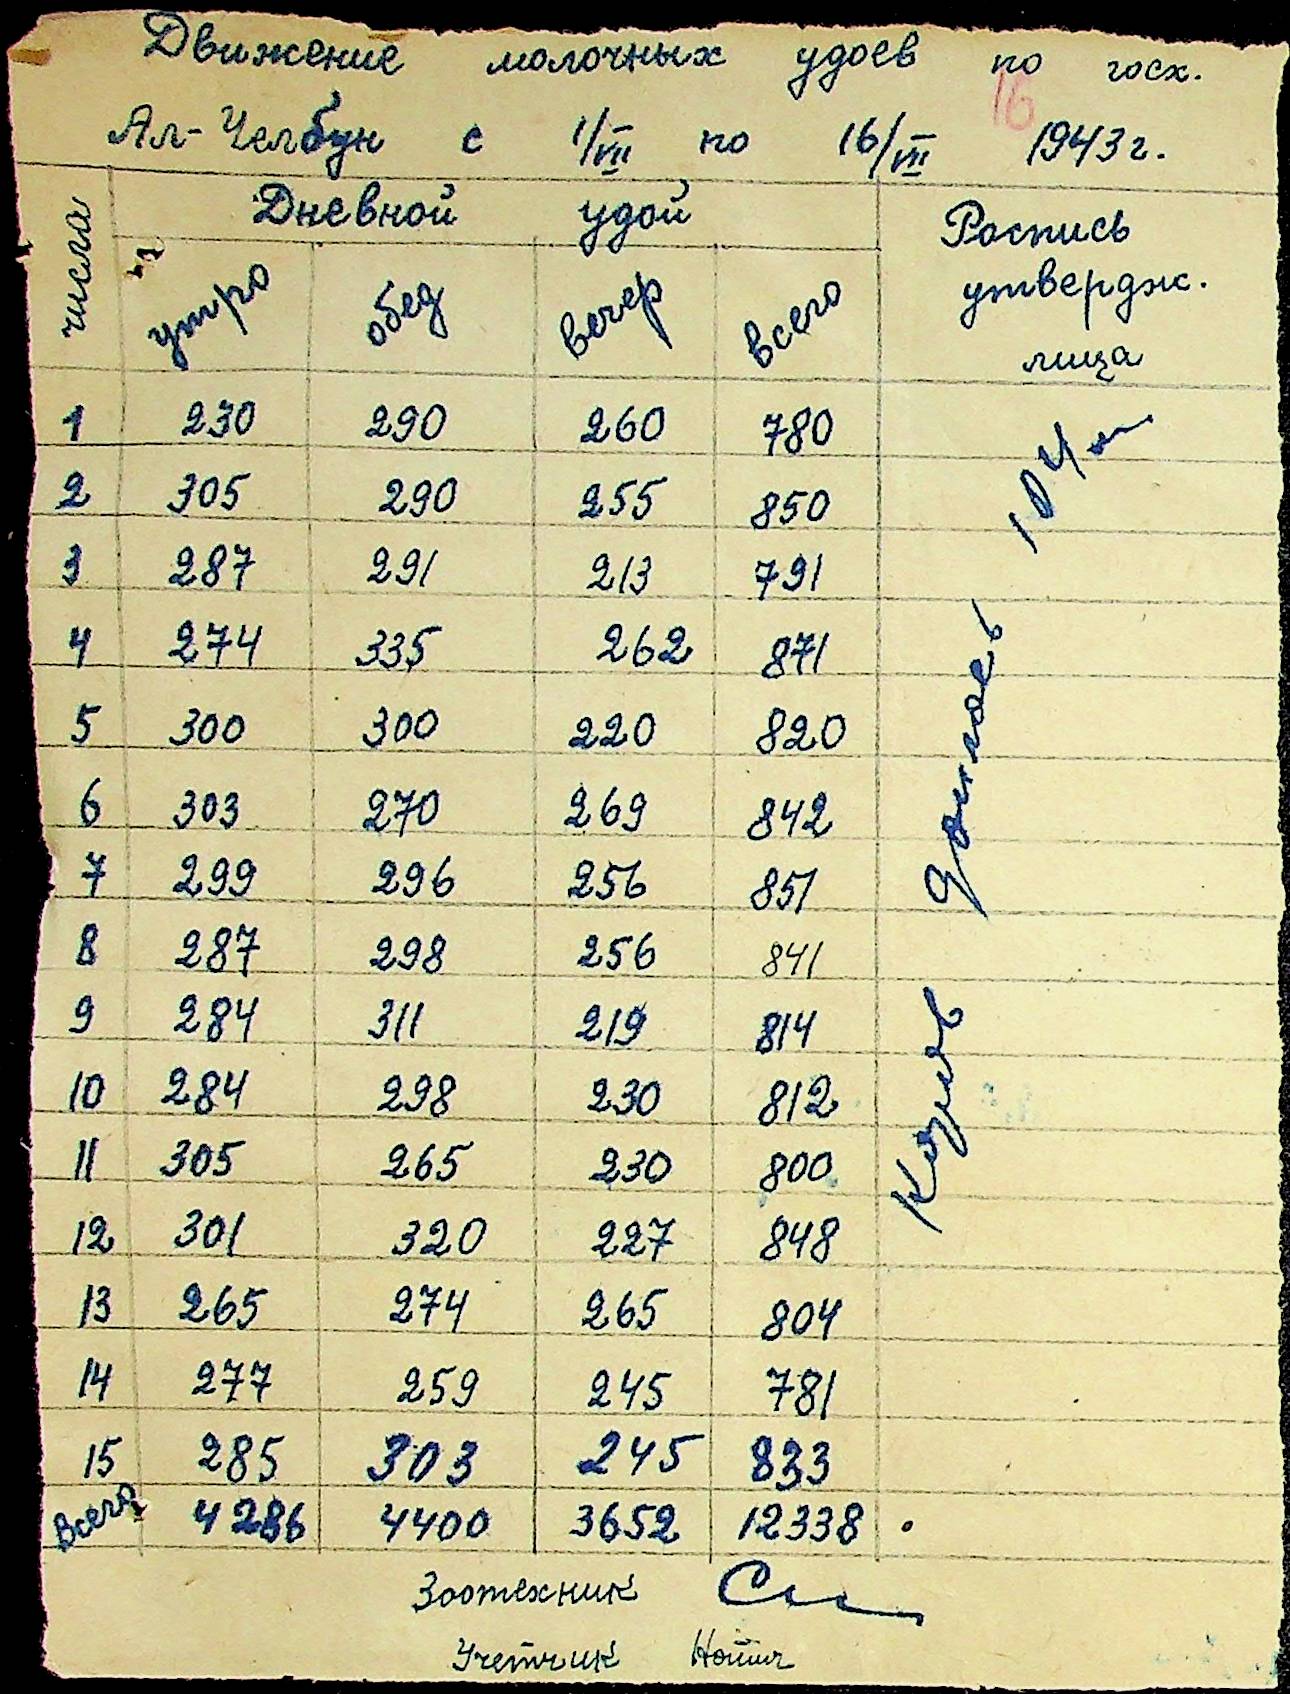 Движение молочных удоев по госх.
16
Ал-Челбун с 1/VII по 16/VII 1943 г.
числа Дневной удой Роспись утвердж. лица
утро обед вечер всего
1 230 290 260 780
2 305 290 255 850
3 287 291 213 791
4 274 335 262 871
5 300 300 220 820
6 303 270 269 842
7 299 296 256 851
8 287 298 256 841
9 284 311 219 814
10 284 298 230 812
11 305 265 230 800
12 301 320 227 848
13 265 274 265 804
14 277 259 245 781
15 285 303 245 833
Всего 4286 4400 3652 12338
Зоотехник
Учетчик